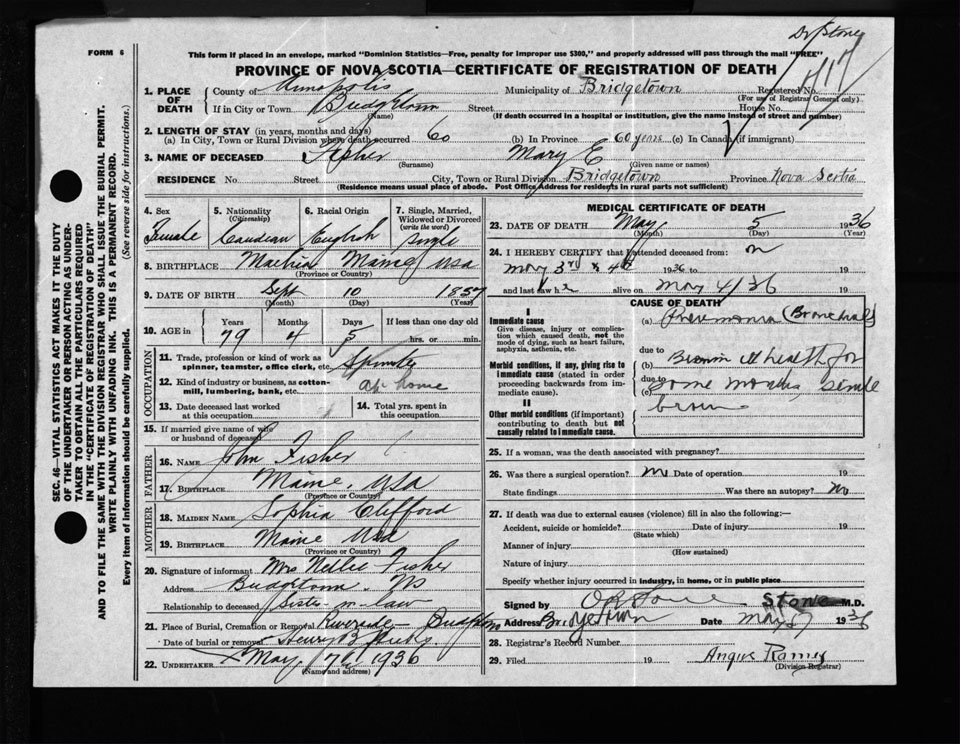 Dr Stone
FORM 6
This form if placed in an envelope, marked "Dominion Statistics—Free, penalty for improper use $300," and properly addressed will pass through the mail "FREE"
PROVINCE OF NOVA SCOTIA—CERTIFICATE OF REGISTRATION OF DEATH
1. PLACE OF DEATH County of Annapolis Municipality of Bridgetown Registered No.
(For use of Registrar General only)
If in City or Town Bridgetown Street House No.
(Name) (If death occurred in a hospital or institution, give the name instead of street and number)
2. LENGTH OF STAY (in years, months and days)
(a) In City, Town or Rural Division where death occurred 60 (b) In Province 60 years (c) In Canada (if immigrant)
3. NAME OF DECEASED Fisher Mary E
(Surname) (Given name or names)
RESIDENCE No Street City, Town or Rural Division Bridgetown Province Nova Scotia
(Residence means usual place of abode. Post Office Address for residents in rural parts not sufficient)
4. Sex 5. Nationality (Citizenship) 6. Racial Origin 7. Single, Married, Widowed or Divorced (write the word)
Female Canadian English Single
8. BIRTHPLACE Machias Maine USA
(Province or Country)
9. DATE OF BIRTH Sept 10 1857
(Month) (Day) (Year)
10. AGE in Years Months Days If less than one day old
79 4 5 hrs. or min.
OCCUPATION
11. Trade, profession or kind of work as spinner, teamster, office clerk, etc. Spinster
12. Kind of industry or business, as cotton-mill, lumbering, bank, etc. at home
13. Date deceased last worked at this occupation 14. Total yrs. spent in this occupation
15. If married give name of wife or husband of deceased
FATHER
16. NAME John Fisher
17. BIRTHPLACE Maine, USA
(Province or Country)
MOTHER
18. MAIDEN NAME Sophia Clifford
19. BIRTHPLACE Maine USA
(Province or Country)
20. Signature of informant Mrs Nellie Fisher
Address Bridgetown NS
Relationship to deceased Sister-in-law
21. Place of Burial, Cremation or Removal Riverside Bridgetown
Date of burial or removal Henry B Hicks
22. UNDERTAKER May 7th 1936
(Name and address)
MEDICAL CERTIFICATE OF DEATH
23. DATE OF DEATH May 5 1936
(Month) (Day) (Year)
24. I HEREBY CERTIFY that I attended deceased from: on
May 3rd & 4th 1936 to 19
and last saw h alive on May 4/36 19
CAUSE OF DEATH
I
Immediate cause
Give disease, injury or complication which caused death, not the mode of dying, such as heart failure, asphyxia, asthenia, etc.
(a) Pneumonia (Bronchial)
due to
Morbid conditions, if any, giving rise to immediate cause (stated in order proceeding backwards from immediate cause).
(b) ill health for
due to
(c) some months, senile
II
Other morbid conditions (if important) contributing to death but not causally related to immediate cause.
25. If a woman, was the death associated with pregnancy?
26. Was there a surgical operation? No Date of operation 19
State findings Was there an autopsy? No
27. If death was due to external causes (violence) fill in also the following:—
Accident, suicide or homicide? Date of injury 19
(State which)
Manner of injury
(How sustained)
Nature of injury
Specify whether injury occurred in industry, in home, or in public place
Signed by Stone Stone M.D.
Address Bridgetown Date May 1936
28. Registrar's Record Number
29. Filed 19 Angus Ramey
(Division Registrar)
SEC. 46—VITAL STATISTICS ACT MAKES IT THE DUTY OF THE UNDERTAKER OR PERSON ACTING AS UNDERTAKER TO OBTAIN ALL THE PARTICULARS REQUIRED IN THE "CERTIFICATE OF REGISTRATION OF DEATH" AND TO FILE THE SAME WITH THE DIVISION REGISTRAR WHO SHALL ISSUE THE BURIAL PERMIT.
WRITE PLAINLY WITH UNFADING INK. THIS IS A PERMANENT RECORD.
Every item of information should be carefully supplied. (See reverse side for instructions.)